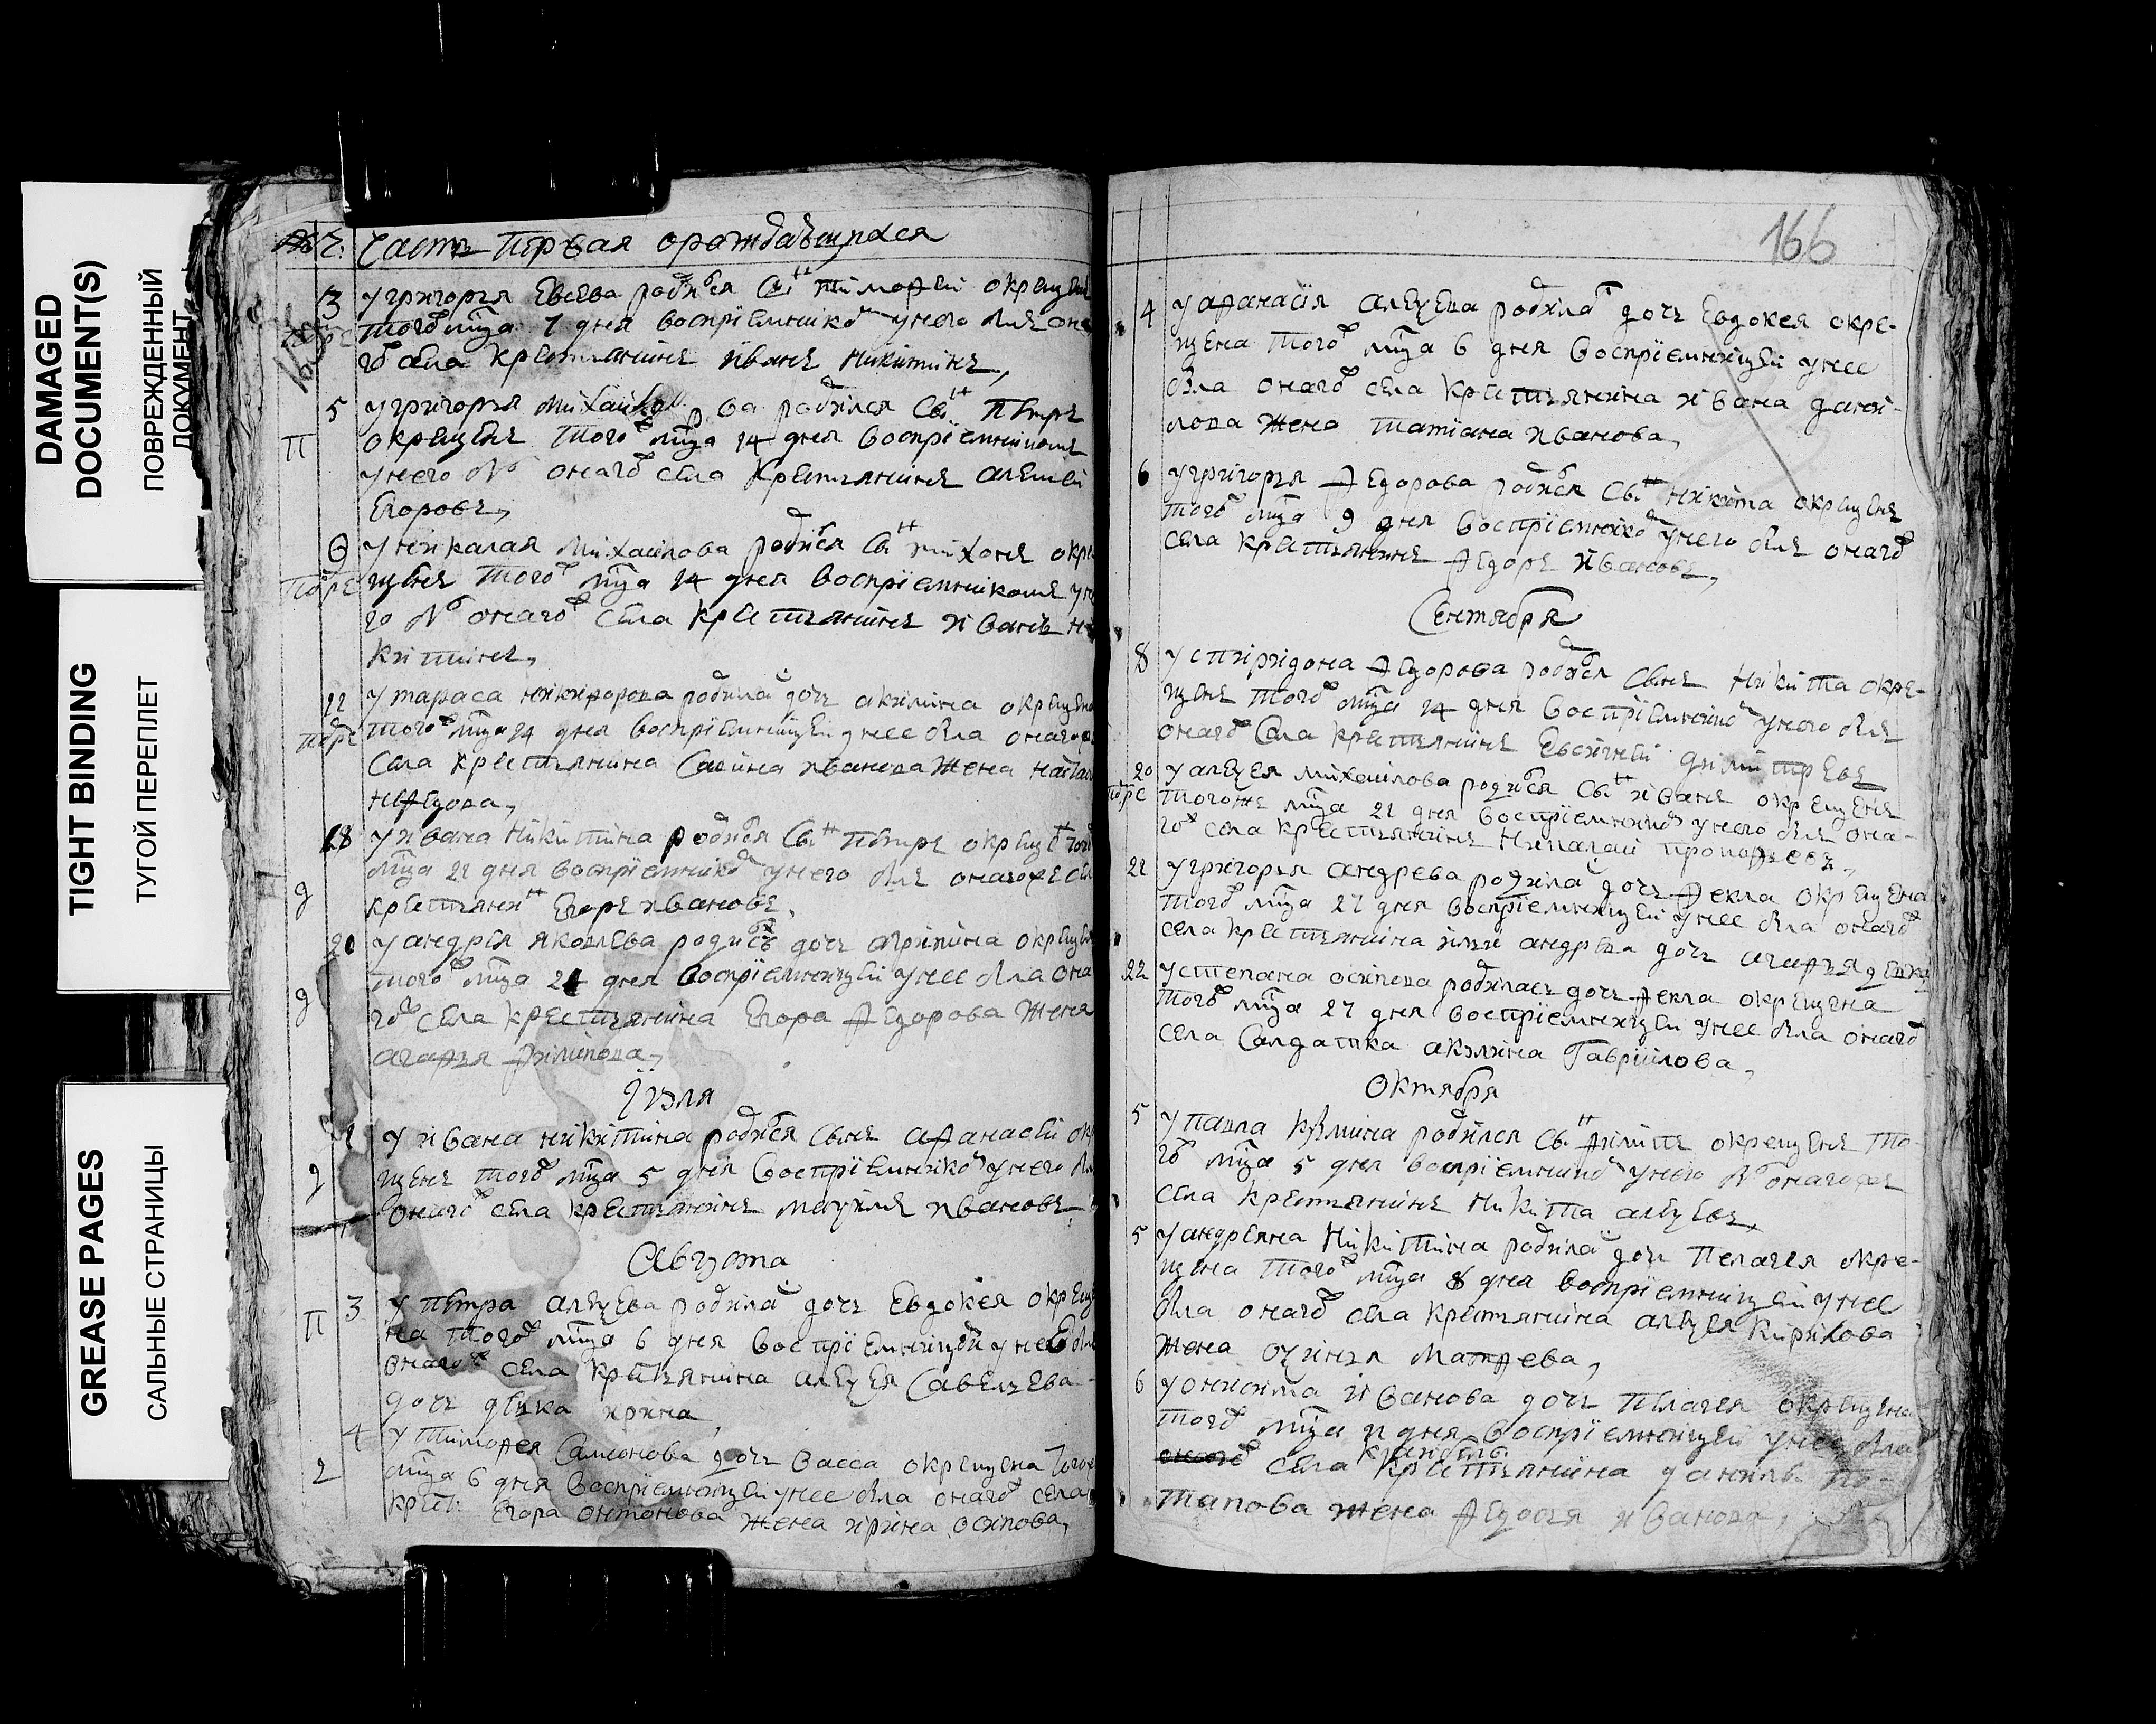 DAMAGED
DOCUMENT(S)
ПОВРЕЖДЕННЫЙ
ДОКУМЕНТ
TIGHT BINDING
ТУГОЙ ПЕРЕПЛЕТ
GREASE PAGES
САЛЬНЫЕ СТРАНИЦЫ
Часть Первая ораждающихся
3 У григорья Евсева родился Сынъ тимофеи окрещен
того мца 7 дня восприемникомъ унего былъ она
го села крестьянинъ иванъ никитинъ,
5 У григорья михаилова родился Сынъ Петръ
П окрещенъ того мца 14 дня восприемникомъ
унего бы онаго села крестьянинъ алексеи
Егоровъ,
9 У николая михаилова родился Сынъ тихонъ окре
щенъ того мца 14 дня восприемникомъ уне
го бы онаго села крестьянинъ иванъ ни
китинъ,
12 У тараса никифорова родилась дочь акилина окрещена
того мца 14 дня восприемницеи унее была онаго
села крестьянина Савина иванова жена
нефедова,
18 У ивана никитина родился Сынъ Петръ окрещенъ того
мца 21 дня восприемникомъ унего былъ онагоже села
крестьянинъ Егоръ ивановъ,
20 У андрея яковлева родилась дочь агрипина окрещена
того мца 24 дня восприемницеи унее была она
го села крестьянина Егора Федорова жена
агафья филипова,
Июля
1 У ивана никитина родился Сынъ афанасеи окре
щенъ того мца 5 дня восприемникомъ унего былъ
онаго села крестьянинъ ивановъ
Августа
П 3 У петра алексева родилась дочь Евдокея окреще
на того мца 6 дня восприемницеи унее была
онаго села крестьянина алексея Савельева
дочь девка ирина,
4 У тимофея Самсонова дочь васса окрещена тогоже
мца 6 дня восприемницеи унее была онаго села
крестьянина Егора онтонова жена ирина осипова,
166
4 У афанасия алексева родилась дочь Евдокея окре-
щена того мца 6 дня восприемницеи унее
была онаго села крестьянина ивана дани-
лова жена татиана иванова,
6 У григорья Федорова родился Сынъ никита окрещенъ
того мца 9 дня восприемникомъ унего былъ онаго
села крестьянинъ Федоръ ивановъ,
Сентября
8 У спиридона Федорова родился Сынъ никита окре-
щенъ того мца 14 дня восприемникомъ унего былъ
онаго села крестьянинъ Евсигнеи димитревъ
20 У алексея михаилова родился Сынъ иванъ окрещенъ
тогоже мца 21 дня восприемникомъ унего былъ она-
го села крестьянинъ николаи прокофьевъ,
21 У григорья андрева родилась дочь Фекла окрещена
того мца 27 дня восприемницеи унее была онаго
села крестьянина ильи андрева дочь агафья девка
22 У степана осипова родилась дочь Фекла окрещена
того мца 27 дня восприемницеи унее была онаго
села Салдатка акилина Гаврилова,
Октября
5 У павла кузмина родился Сынъ филипъ окрещенъ то-
го мца 5 дня восприемникомъ унего бы онагоже
села крестьянинъ никита алексевъ,
5 У андреяна никитина родилась дочь Пелагея окре-
щена того мца 8 дня восприемницеи унее
была онаго села крестьянина алексея кирилова
жена Матфева,
6 У онисима иванова дочь Пелагея окрещена
того мца 11 дня восприемницеи унее была
села крестьянина данилы по-
тапова жена Федосья иванова,